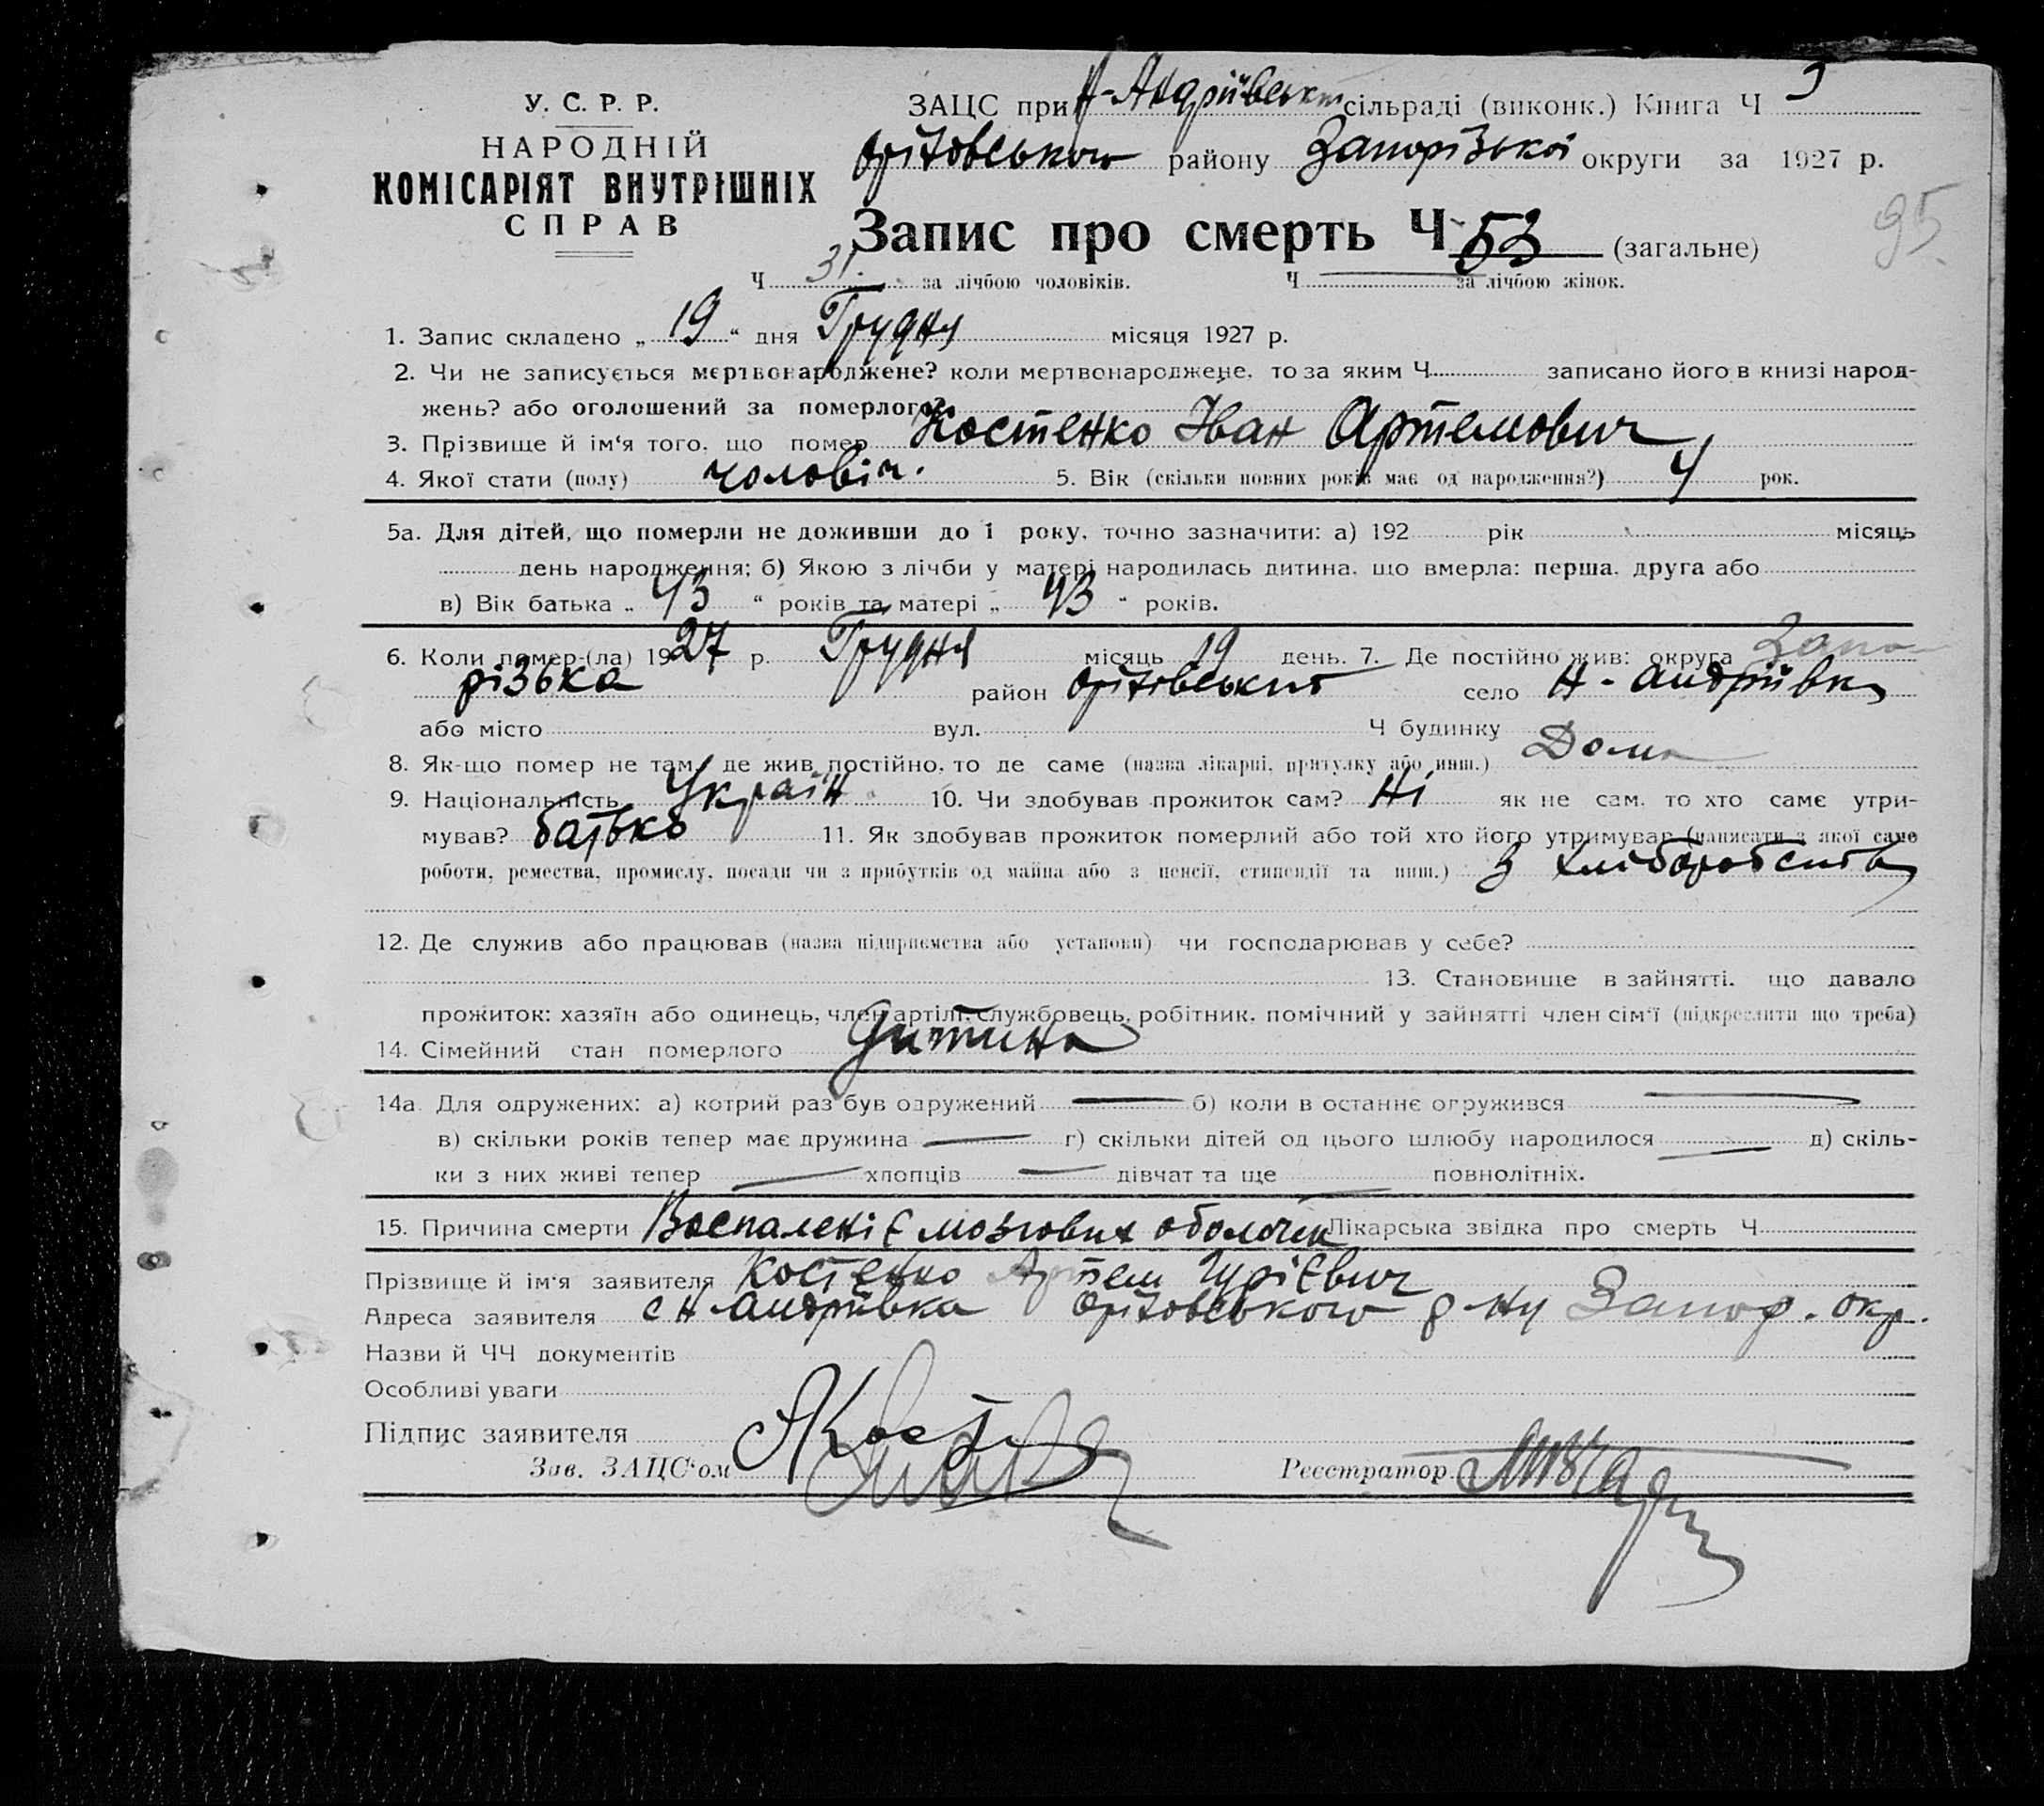 У. С. Р. Р.
НАРОДНІЙ
КОМІСАРІЯТ ВНУТРІШНІХ
СПРАВ
ЗАЦС при Н-Андріївськ сільраді (виконк.) Книга Ч
Оріховського району Запорізької округи за 1927 р.
95
Запис про смерть Ч 53 (загальне)
Ч 31 за лічбою чоловіків. Ч за лічбою жінок.
1. Запис складено „ 19 “ дня Грудня місяця 1927 р.
2. Чи не записується мертвонароджене? коли мертвонароджене, то за яким Ч записано його в книзі народ-
жень? або оголошений за померлого?
3. Прізвище й ім'я того, що помер Костенко Іван Артемович
4. Якої стати (полу) чоловіч. 5. Вік (скільки повних років має од народження?) 4 рок.
5а. Для дітей, що померли не доживши до 1 року, точно зазначити: а) 192 рік місяць
день народження; б) Якою з лічби у матері народилась дитина, що вмерла: перша, друга або
в) Вік батька „ 43 “ років та матері „ 43 “ років.
6. Коли помер-(ла) 1927 р. Грудня місяць 19 день. 7. Де постійно жив: округа Запо-
різька район Оріхівський село Н-Андріївка
або місто вул. Ч будинку
8. Як-що помер не там, де жив постійно, то де саме (назва лікарні, притулку або инш.) Дома
9. Національність Україн 10. Чи здобував прожиток сам? Ні як не сам, то хто саме утри-
мував? батько 11. Як здобував прожиток померлий або той хто його утримував (написати з якої саме
роботи, ремества, промислу, посади чи з прибутків од майна або з пенсії, стипендії та инш.) З хліборобства
12. Де служив або працював (назва підприємства або установи) чи господарював у себе?
13. Становище в зайнятті, що давало
прожиток: хазяїн або одинець, член артілі, службовець, робітник, помічний у зайнятті член сім'ї (підкреслити що треба)
14. Сімейний стан померлого Дитина
14а. Для одружених: а) котрий раз був одружений б) коли в останнє одружився
в) скільки років тепер має дружина г) скільки дітей од цього шлюбу народилося д) скіль-
ки з них живі тепер хлопців дівчат та ще повнолітніх.
15. Причина смерти Воспаленіє мозгових оболочек Лікарська звідка про смерть Ч
Прізвище й ім'я заявителя Костенко Артем Гурієвич
Адреса заявителя с Н-Андріївка Оріховського р-ну Запор. окр.
Назви й ЧЧ документів
Особливі уваги
Підпис заявителя
Зав. ЗАЦС'ом Реєстратор